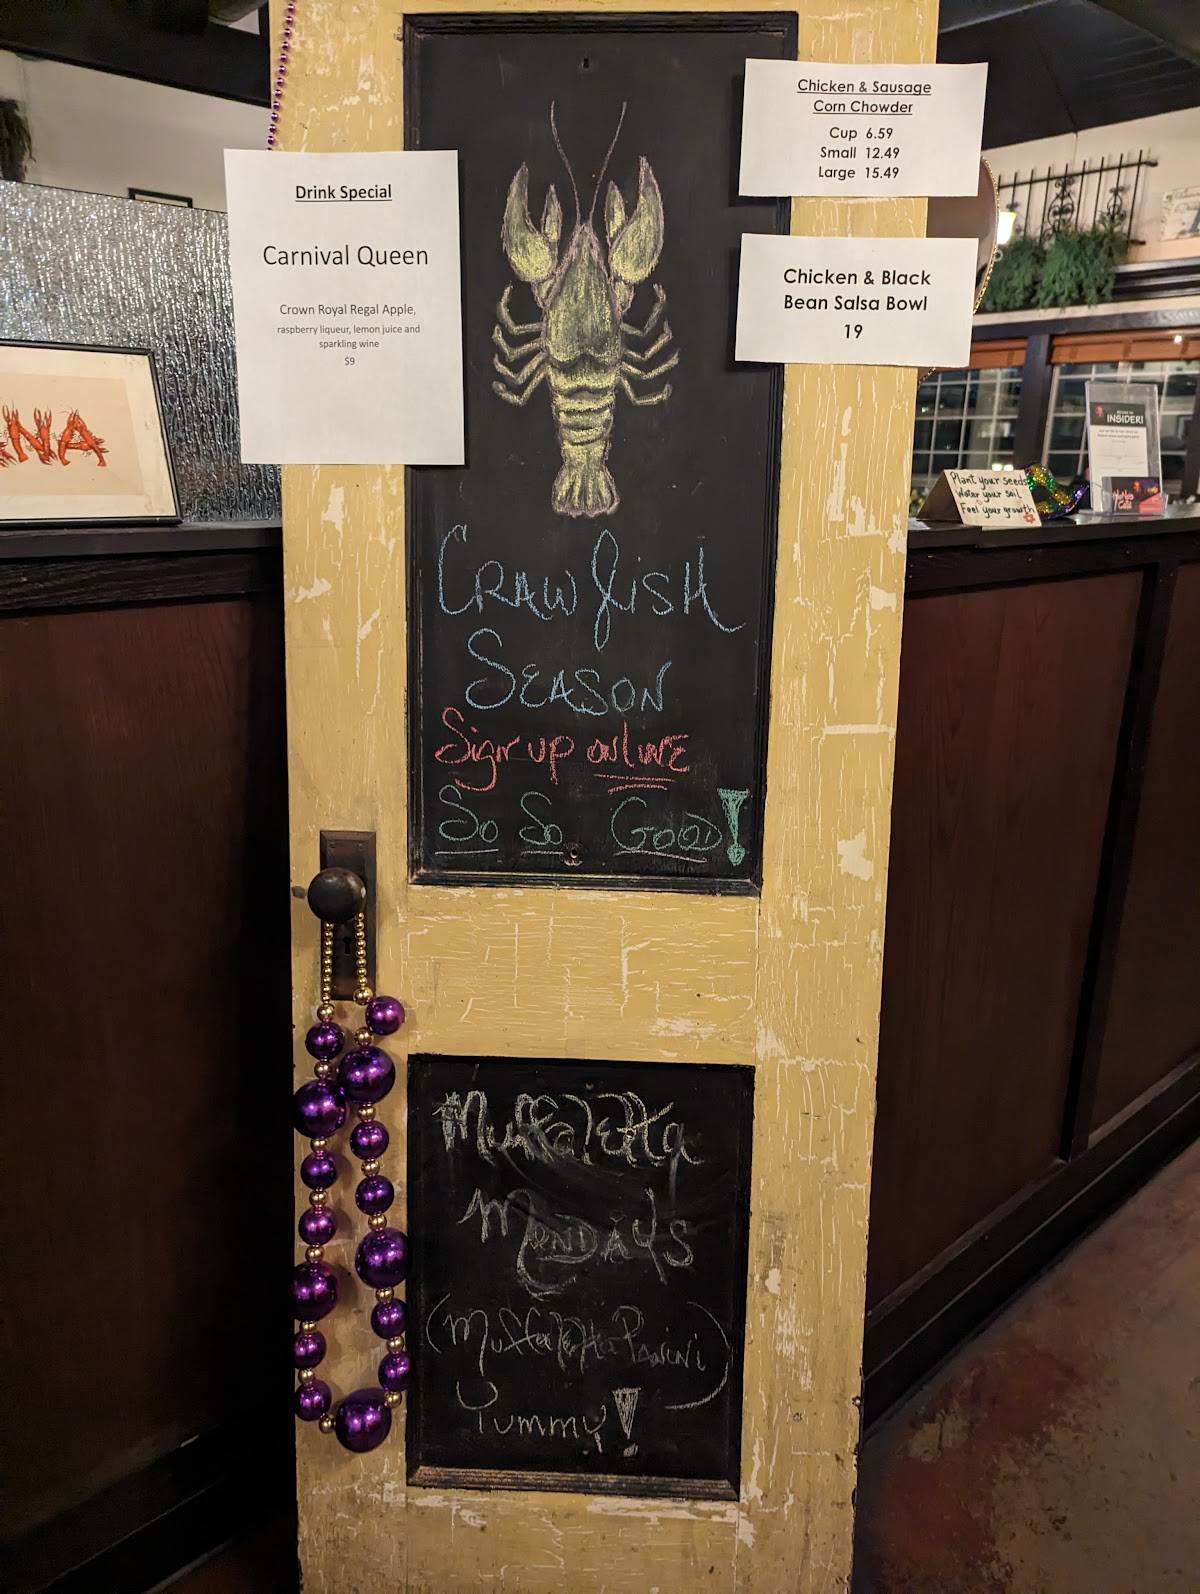 Drink Special
Carnival Queen
Crown Royal Regal Apple,
raspberry liqueur, lemon juice and
sparkling wine
$9
Chicken & Sausage
Corn Chowder
Cup 6.59
Small 12.49
Large 15.49
Chicken & Black
Bean Salsa Bowl
19
CRAWfiSH
SEASON
Sign up ONLINE
So So GOOD!
Muffaletta
MONDAYS
(Muffaletta PANiNi)
Yummy!
NA
INSIDER!
Plant your seeds
Water your soil
Feel your growth